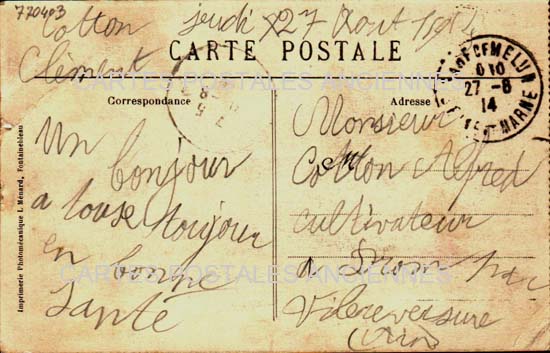 770403
Cotton jeudi 27 Aout 1914
Clèment
CARTE POSTALE
CARTES POSTALES ANCIENNES
Correspondance
Adresse
MELUN
27 - 8
14
MARNE
Un bonjour
a touse toujour
en bonne
santé
Monsieur
Cotton Alfred
cultivateur
a par
Villereversure
(Ain)
CARTES POSTALES ANCIENNES
Imprimerie Photomécanique L. Ménard, Fontainebleau